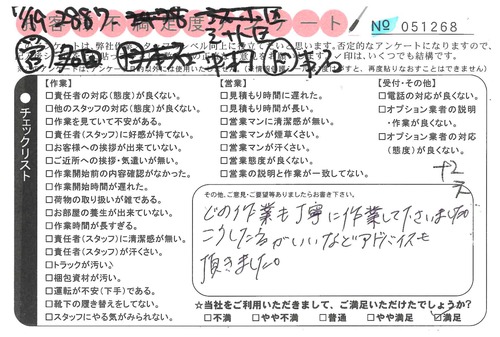 11/19 2887
お客様満足度アンケート
No 051268
アンケートは、弊社
レベル向上に役立てたいと思います。否定的なアンケートになりますので、
印は、いくつでも結構です。
再度貼りなおすことはできません)
チェックリスト
【作業】
□責任者の対応(態度)が良くない。
□他のスタッフの対応(態度)が良くない。
□作業を見ていて不安がある。
□責任者(スタッフ)に好感が持てない。
□お客様への挨拶が出来ていない。
□ご近所への挨拶・気遣いが無い。
□作業開始前の内容確認がなかった。
□作業開始時間が遅れた。
□荷物の取り扱いが雑である。
□お部屋の養生が出来ていない。
□作業時間が長すぎる。
□責任者(スタッフ)に清潔感が無い。
□責任者(スタッフ)が汗くさい。
□トラックが汚い♪
□梱包資材が汚い。
□運転が不安(下手)である。
□靴下の履き替えをしてない。
□スタッフにやる気がみられない。
【営業】
□見積もり時間に遅れた。
□見積もり時間が長い。
□営業マンに清潔感が無い。
□営業マンが煙草くさい。
□営業マンが汗くさい。
□営業態度が良くない。
□営業の説明と作業が一致してない。
【受付・その他】
□電話の対応が良くない。
□オプション業者の説明
・作業が良くない。
□オプション業者の対応
(態度)が良くない。
その他、ご意見・ご要望等ありましたらお書き下さい。
どの作業も丁寧に作業して下さいました。
こうした方がいいなどアドバイスも
頂きました。
☆当社をご利用いただきまして、ご満足いただけたでしょうか?
□不満 □やや不満 □普通 □やや満足 □満足